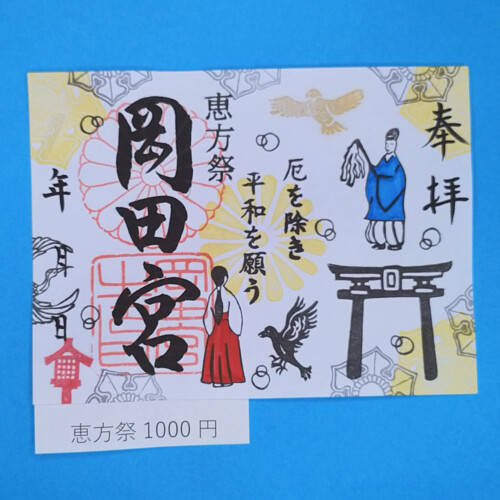 奉拝
厄を除き
平和を願う
恵方祭
岡田宮
年
月
日
恵方祭 1000 円